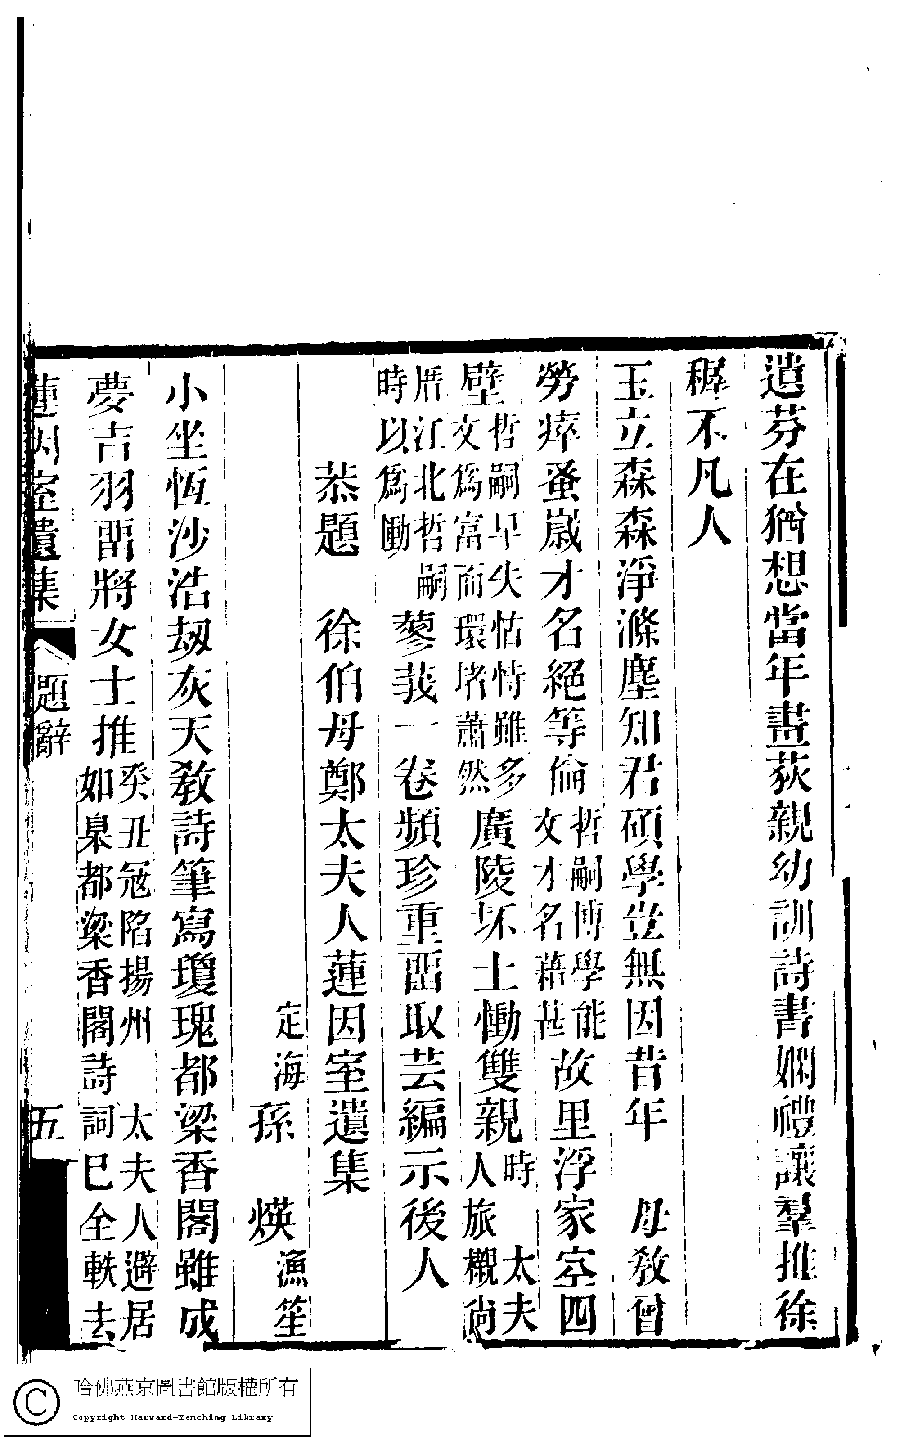 遺芬在猶想當年畫荻親幼訓詩書嫻禮讓羣推徐
穉不凡人
玉立森森淨滌塵知君碩學豈無因昔年　母教曾
勞瘁蚤歲才名絕等倫哲嗣博學能文才名藉甚故里浮家空四
壁哲嗣早失怙恃雖多文爲富而環堵蕭然廣陵坏土慟雙親時　太夫人旅櫬尚
厝江北哲嗣時以爲慟蓼莪一卷頻珍重畱取芸編示後人
恭題　徐伯母鄭太夫人蓮因室遺集
定海孫　煐漁笙
小坐恆沙浩刼灰天教詩筆寫瓊瑰都梁香閣雖成
夢吉羽畱將女士推癸丑寇陷揚州　太夫人避居如臯都梁香閣詩詞已全軼去
蓮因室遺集　題辭　五
哈佛燕京圖書館版權所有
Copyright Harvard-Yenching Library